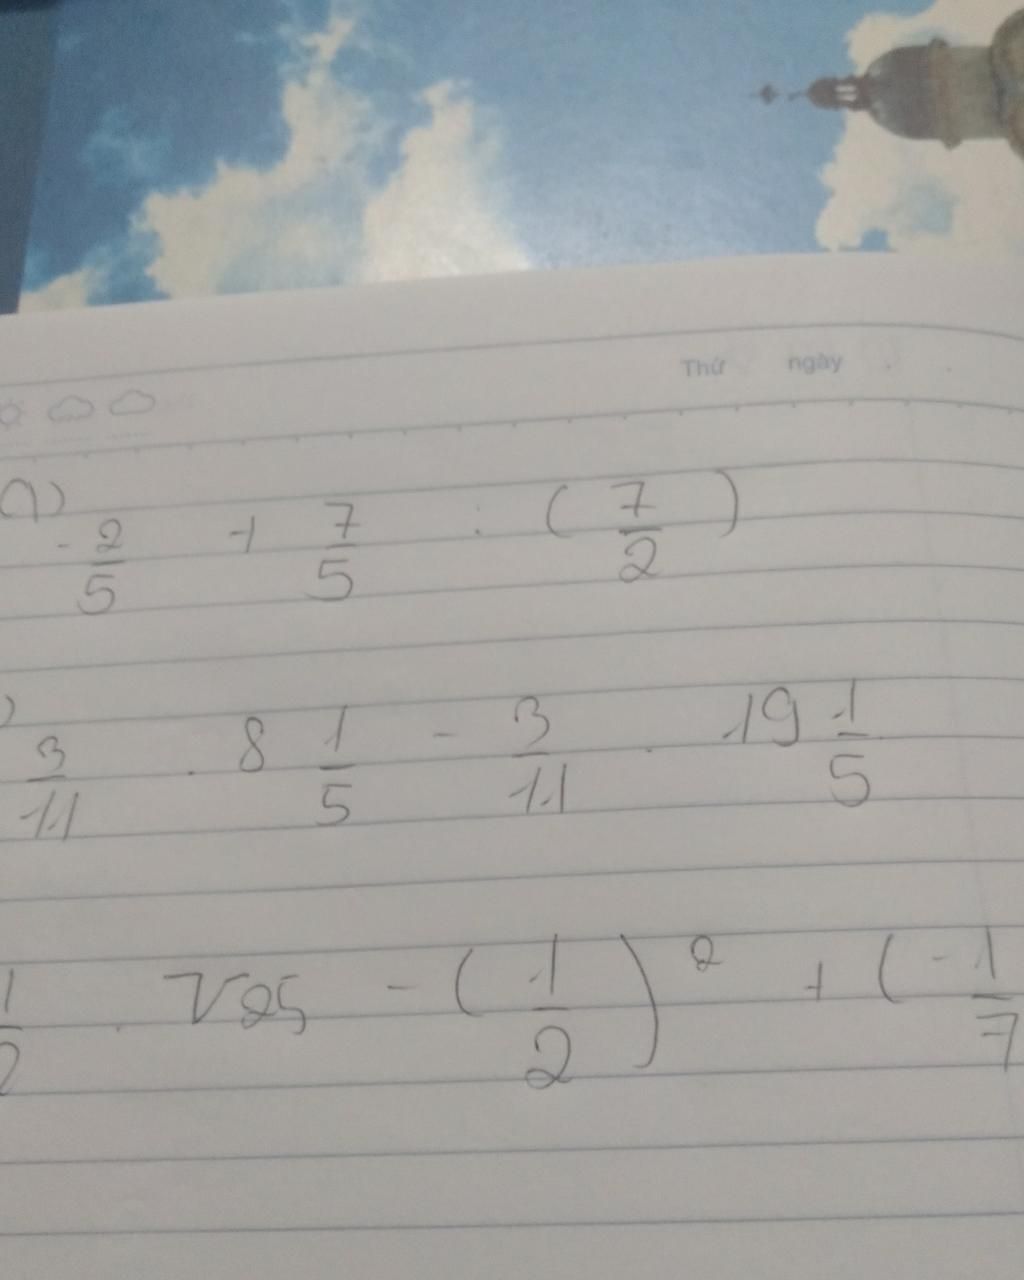 Thứ ngày
a) -2/5 + 7/5 : (7/2)
) 3/11 . 8 1/5 - 3/11 . 19 1/5
1/2 . √25 - (1/2)² + (-1/7